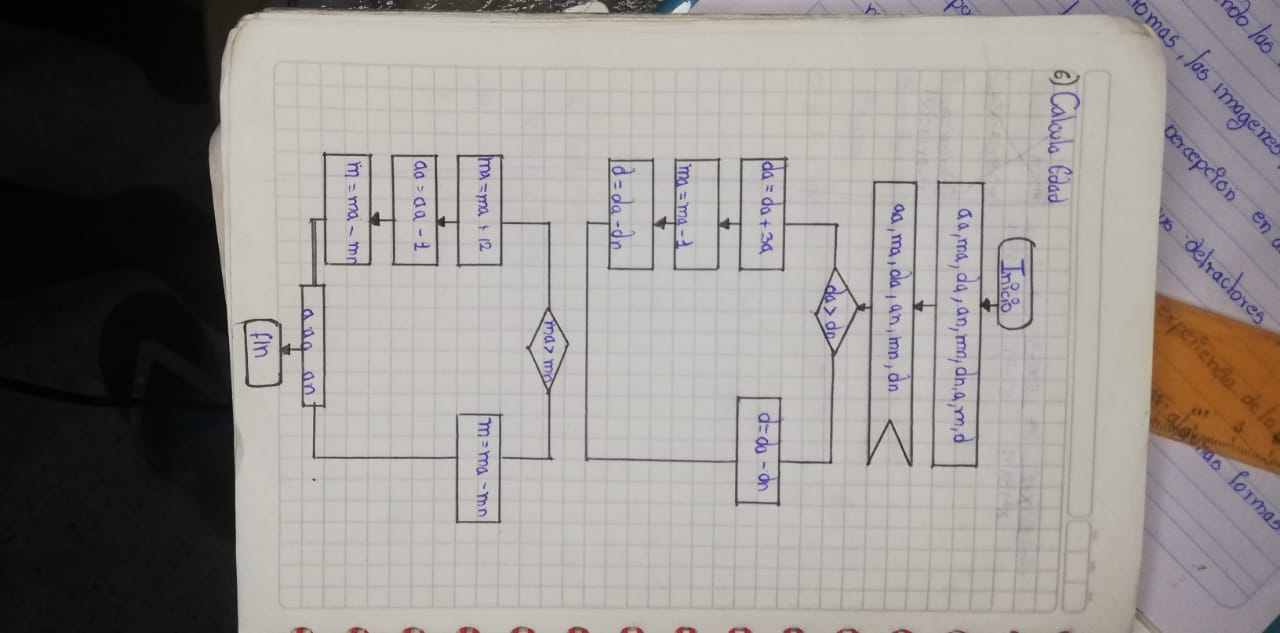 6) Calculo Edad
Inicio
aa, ma, da, an, mn, dn, a, m, d
aa, ma, da, an, mn, dn
da > dn
da = da + 30
ma = ma - 1
d = da - dn
d = da - dn
ma > mn
ma = ma + 12
aa = aa - 1
m = ma - mn
m = ma - mn
a aa an
fin
ndo las
nomas, las imagenes
percepción en
detractores
experiencia de lo
formas